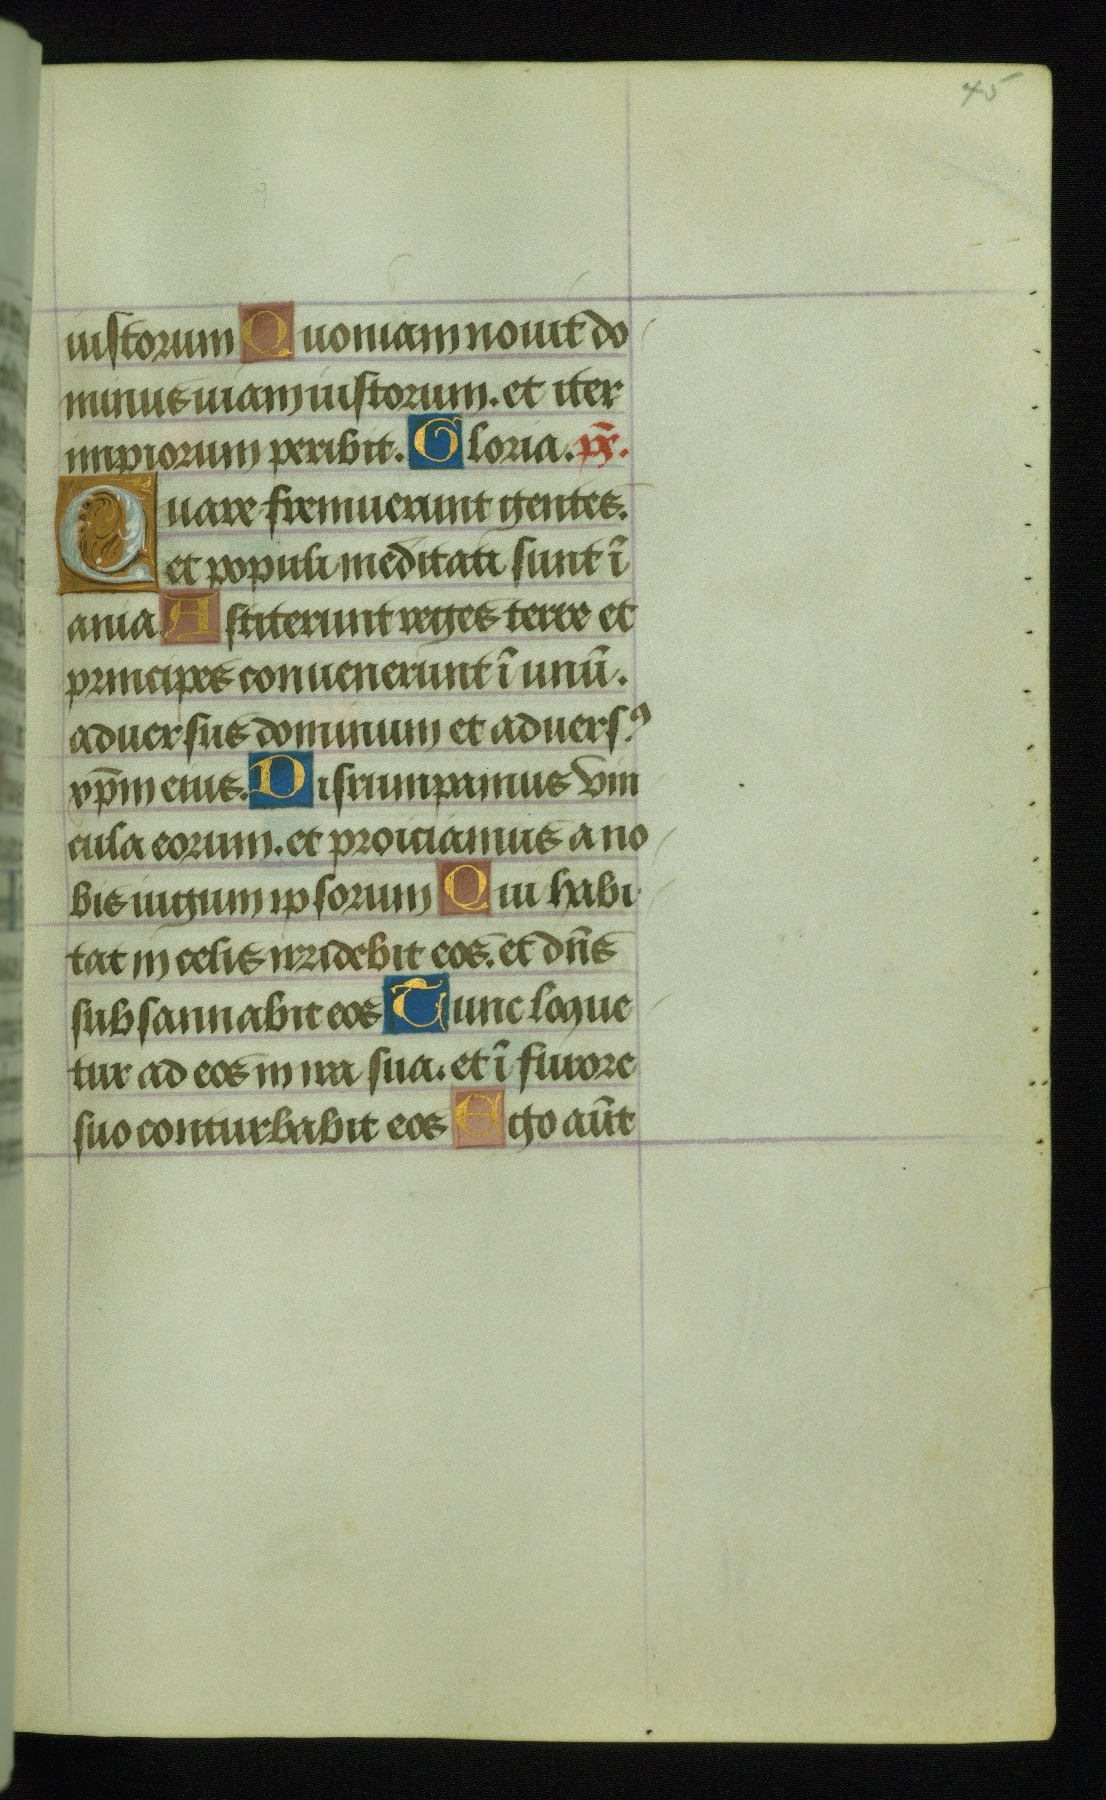 45
iustorum Quoniam nouit do
minus uiam iustorum. et iter
impiorum peribit. Gloria. ps̄.
Quare fremuerunt gentes.
et populi meditati sunt ī
ania Astiterunt reges terre et
principes conuenerunt ī unū.
aduersus dominum et aduersꝰ
xp̄m eius. Disrumpamus vin
cula eorum. et proiciamus a no
bis iugum ipsorum Qui habi
tat in celis irridebit eos. et dn̄s
subsannabit eos Tunc loque
tur ad eos in ira sua. et ī furore
suo conturbabit eos Ego aūt